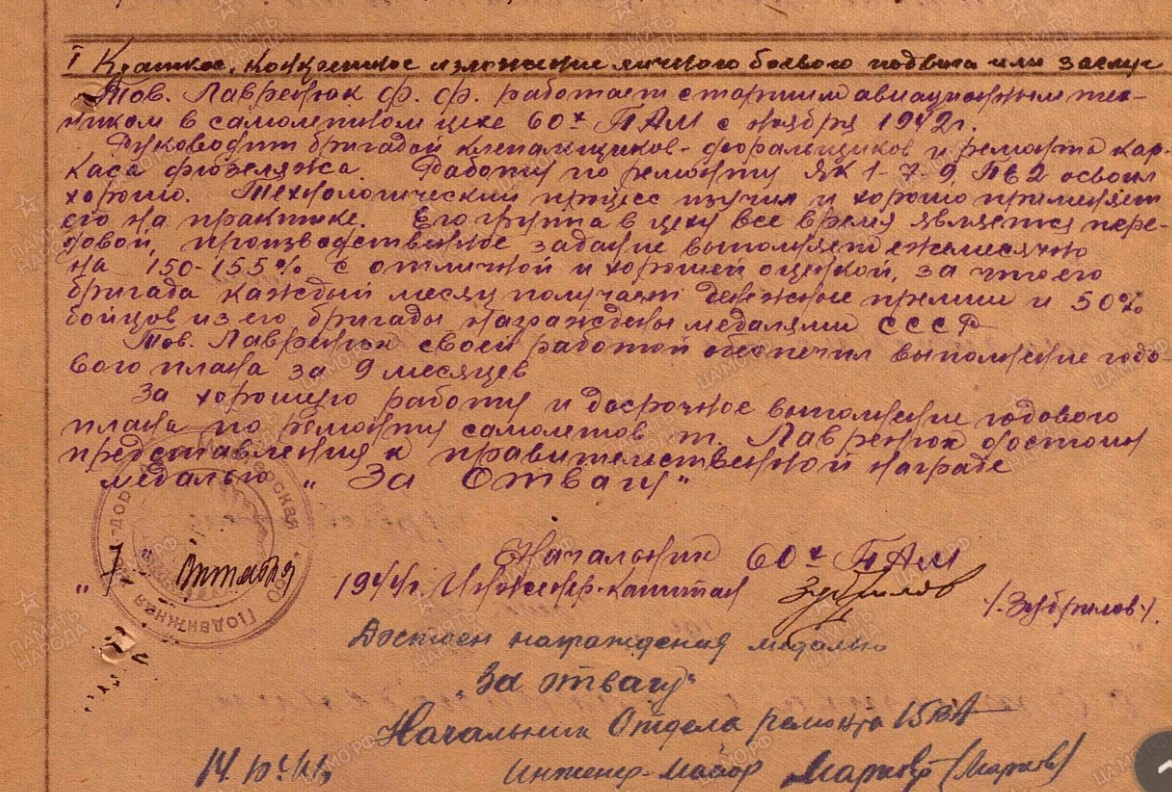 I Краткое, конкретное изложение личного боевого подвига или заслуг
Тов. Лавренюк Ф. Ф. работает старшим авиационным тех-
ником в самолетном цехе 60х ПАМ с ноября 1942 г.
Руководит бригадой клепальщиков-дюральщиков и ремонта кар-
каса фюзеляжа. Работу по ремонту ЯК 1-7-9, Пе2 освоил
хорошо. Технологический процесс изучил и хорошо применяет
его на практике. Его группа в цеху все время является пере-
довой, производственное задание выполняет ежемесячно
на 150-155% с отличной и хорошей оценкой, за что его
бригада каждый месяц получает денежные премии и 50%
бойцов из его бригады награждены медалями СССР
Тов. Лавренюк своей работой обеспечил выполнение годо
вого плана за 9 месяцев
За хорошую работу и досрочное выполнение годового
плана по ремонту самолетов т. Лавренюк достоин
представления к правительственной награде
медалью „За Отвагу"
Начальник 60х ПАМ
„7" Октября 1944 г. Инженер-капитан Зубрилов /Зубрилов/.
Подвижная
Достоин награждения медалью
„За отвагу"
Начальник Отдела ремонта 15 ВА
14.10.44 Инженер-майор Марков (Марков)
ПАМЯТЬ НАРОДА
ЦАМО РФ